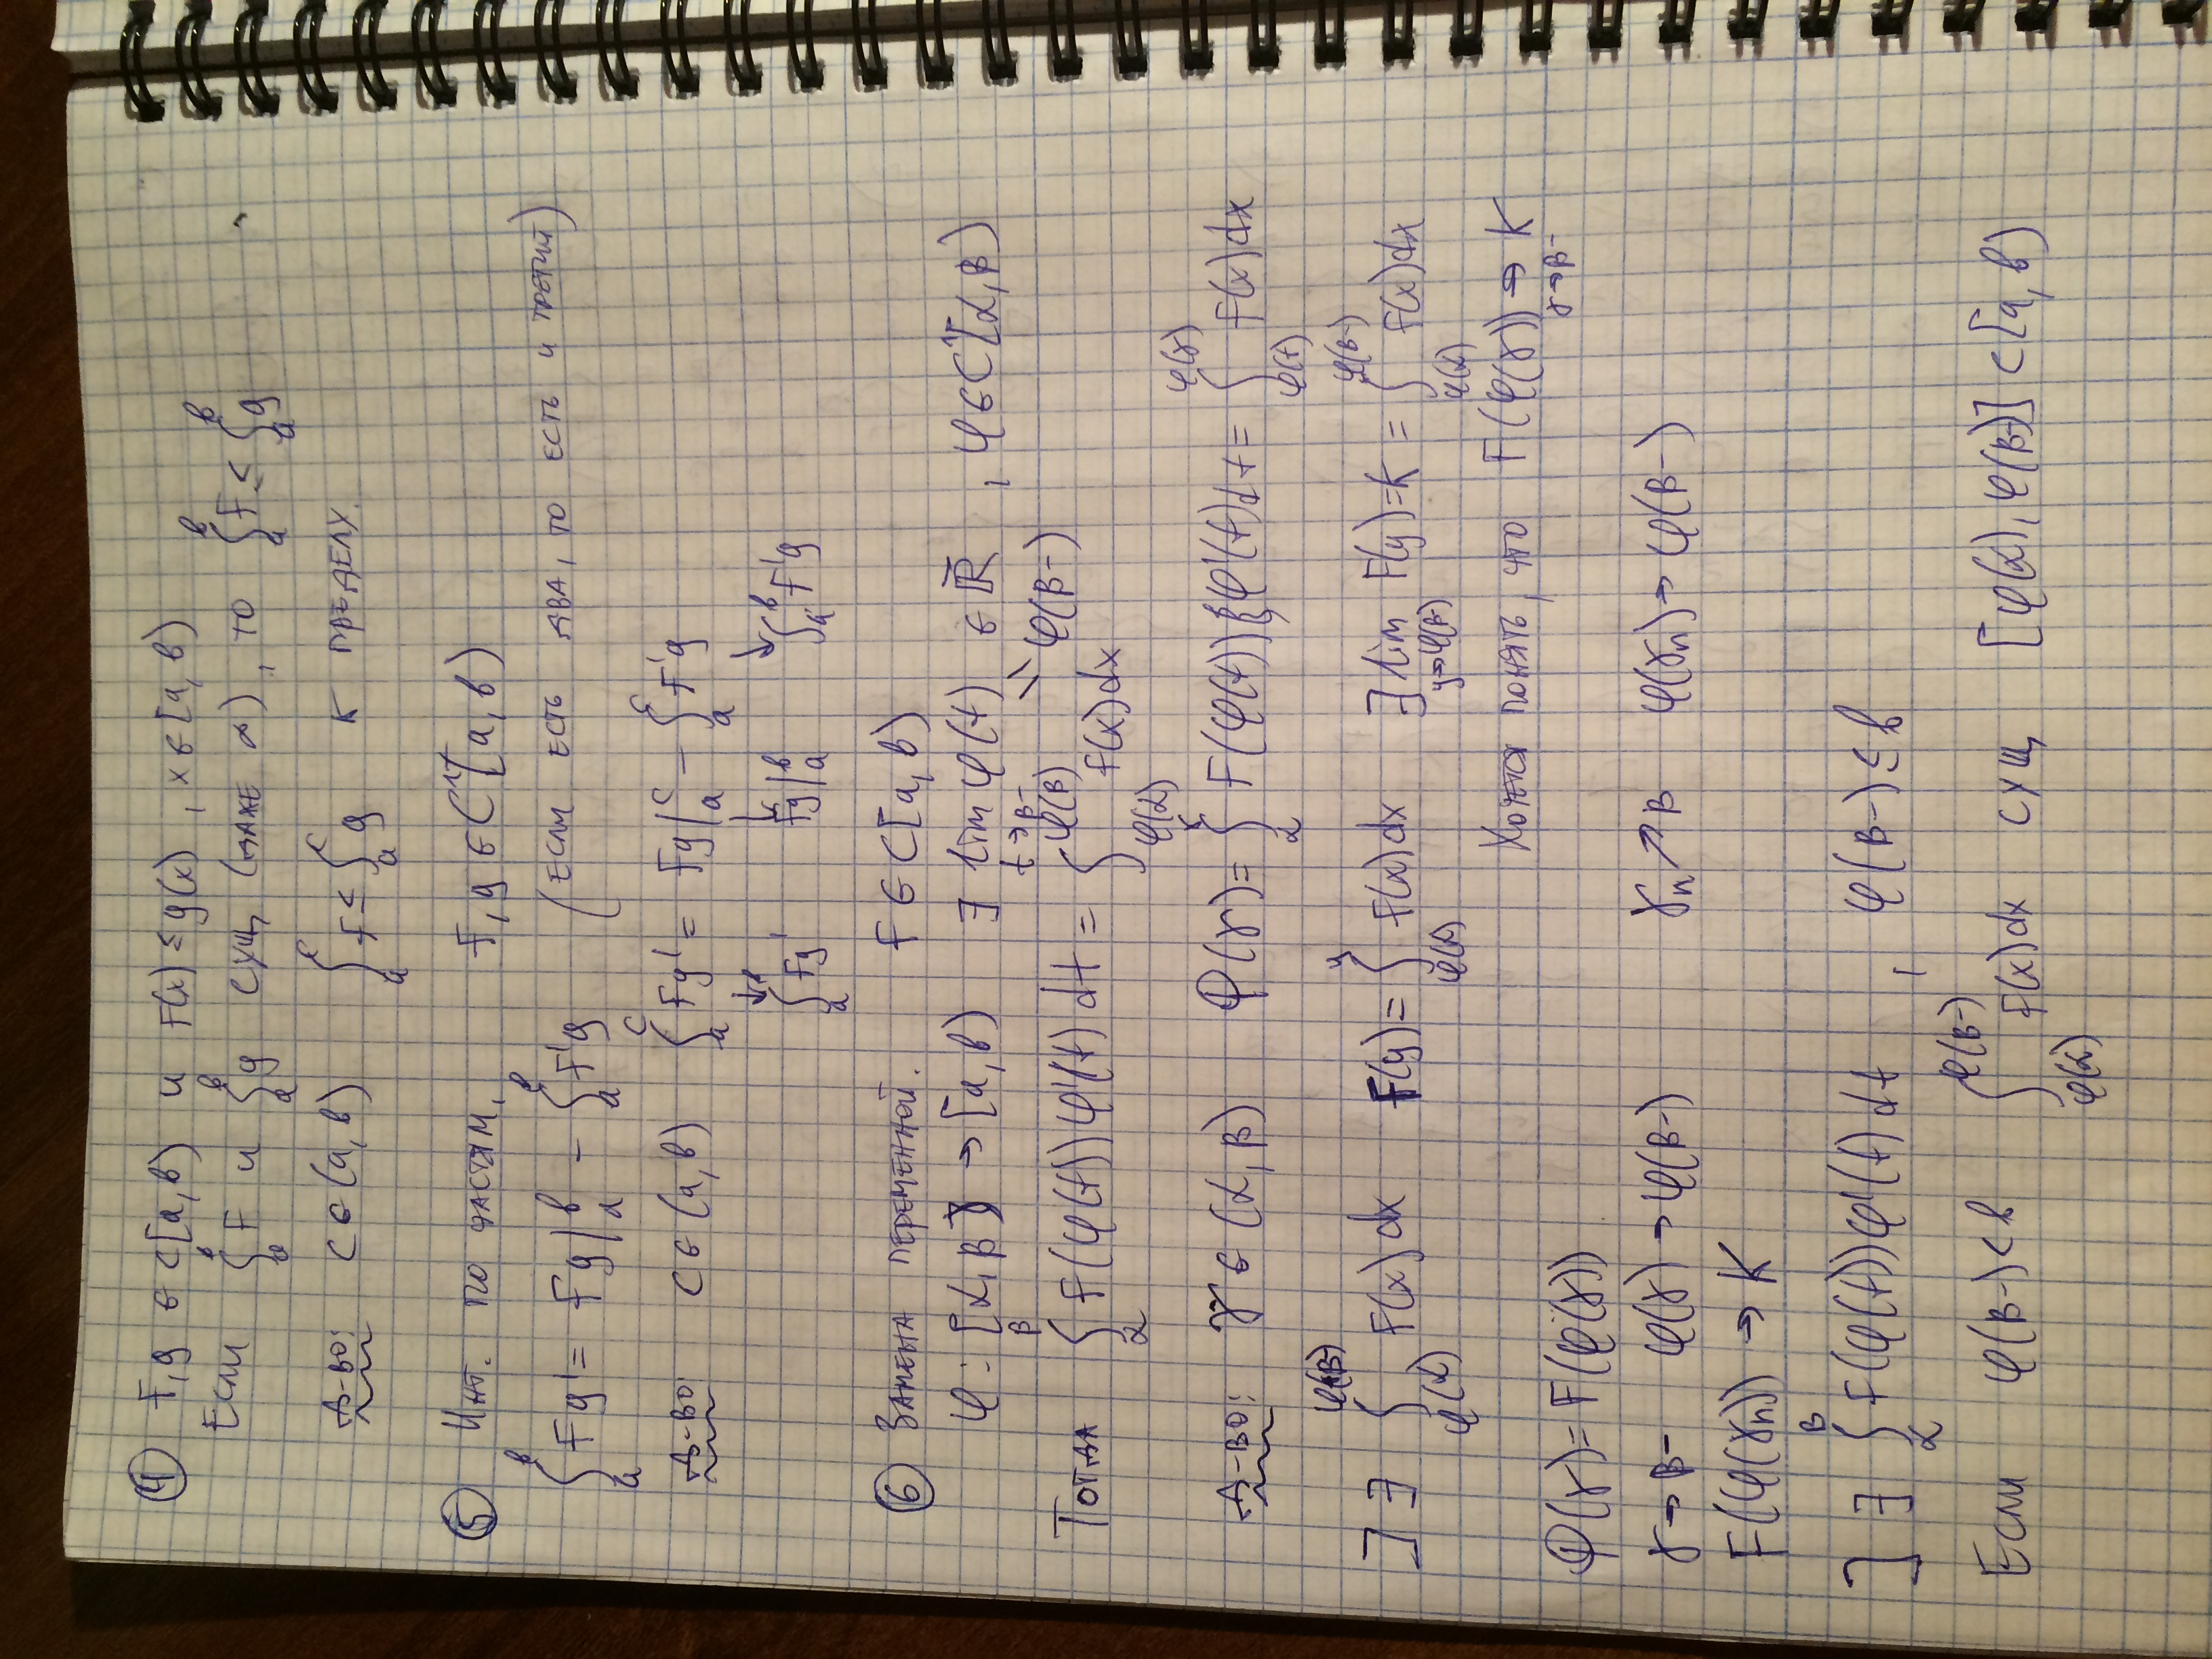 ④ F, g ∈ C[a, b) и F(x) ≤ g(x), x ∈ [a, b)
Если ∫_a^b F и ∫_a^b g сущ (даже ∞), то ∫_a^b F ≤ ∫_a^b g
Д-во: c ∈ (a, b) ∫_a^c F ≤ ∫_a^c g к пределу.
⑤ Инт. по частям. F, g ∈ C¹[a, b)
∫_a^b Fg' = Fg|_a^b − ∫_a^b F'g (если есть два, то есть и третий)
Д-во: c ∈ (a, b) ∫_a^c Fg' = Fg|_a^c − ∫_a^c F'g
↓ ↓ ↓
∫_a^b Fg' Fg|_a^b ∫_a^b F'g
⑥ Замена переменной. F ∈ C[a, b)
φ: [α, β) → [a, b) ∃ lim_{t→β−} φ(t) ∈ ℝ̄, φ ∈ C¹[α, β)
= φ(β−)
Тогда ∫_α^β F(φ(t))φ'(t)dt = ∫_{φ(α)}^{φ(β)} F(x)dx
Д-во: γ ∈ (α, β) Φ(γ) = ∫_α^γ F(φ(t))φ'(t)dt = ∫_{φ(t)}^{φ(γ)} F(x)dx
] ∃ ∫_{φ(α)}^{φ(β−)} F(x)dx F(y) = ∫_{φ(α)}^y F(x)dx ∃ lim_{y→φ(β−)} F(y) = K = ∫_{φ(α)}^{φ(β−)} F(x)dx
Хочется понять, что F(φ(γ)) →_{γ→β−} K
Φ(γ) = F(φ(γ))
γ → β− φ(γ) → φ(β−) γₙ ↗ β φ(γₙ) → φ(β−)
F(φ(γₙ)) → K
] ∃ ∫_α^β F(φ(t))φ'(t)dt, φ(β−) ≤ b
Если φ(β−) < b ∫_{φ(α)}^{φ(β−)} F(x)dx сущ [φ(α), φ(β−)] ⊂ [a, b)